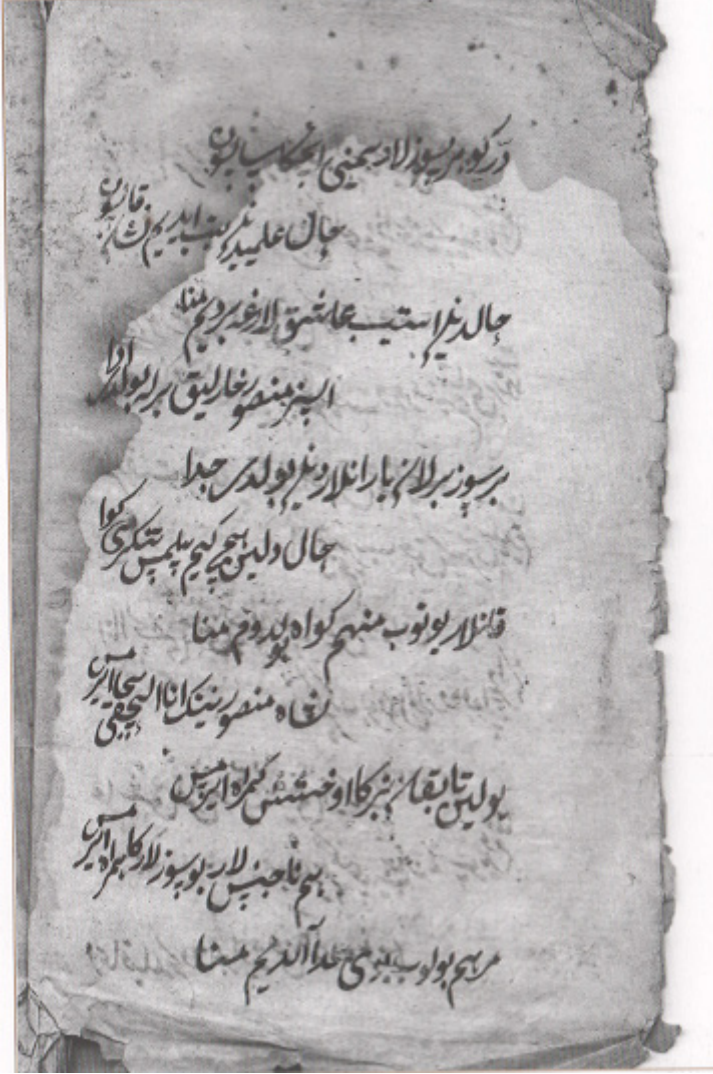 در کوهر سوزلار
حال علمیدین ایدیم قان
حالدین ایتیب عاشق لارغه بردیم منا
ایسیز منصور خارلیق برله بولدی ادا
بر سوز برلان یارانلاردین بولدی جدا
حال ولین هیچ کیم بیلمس تنکریم کوا
قانلار یوتوب منهم کواه بولدوم منا
شاه منصور نینک انا الحقی بیجا ایرمس
یولین تابقان بیزکا اوخشش کمراه ایرمس
هم ناجنس لار بو سوزلارکا همراه ایرمس
مرهم بولوب بوی خدا آلدیم منا